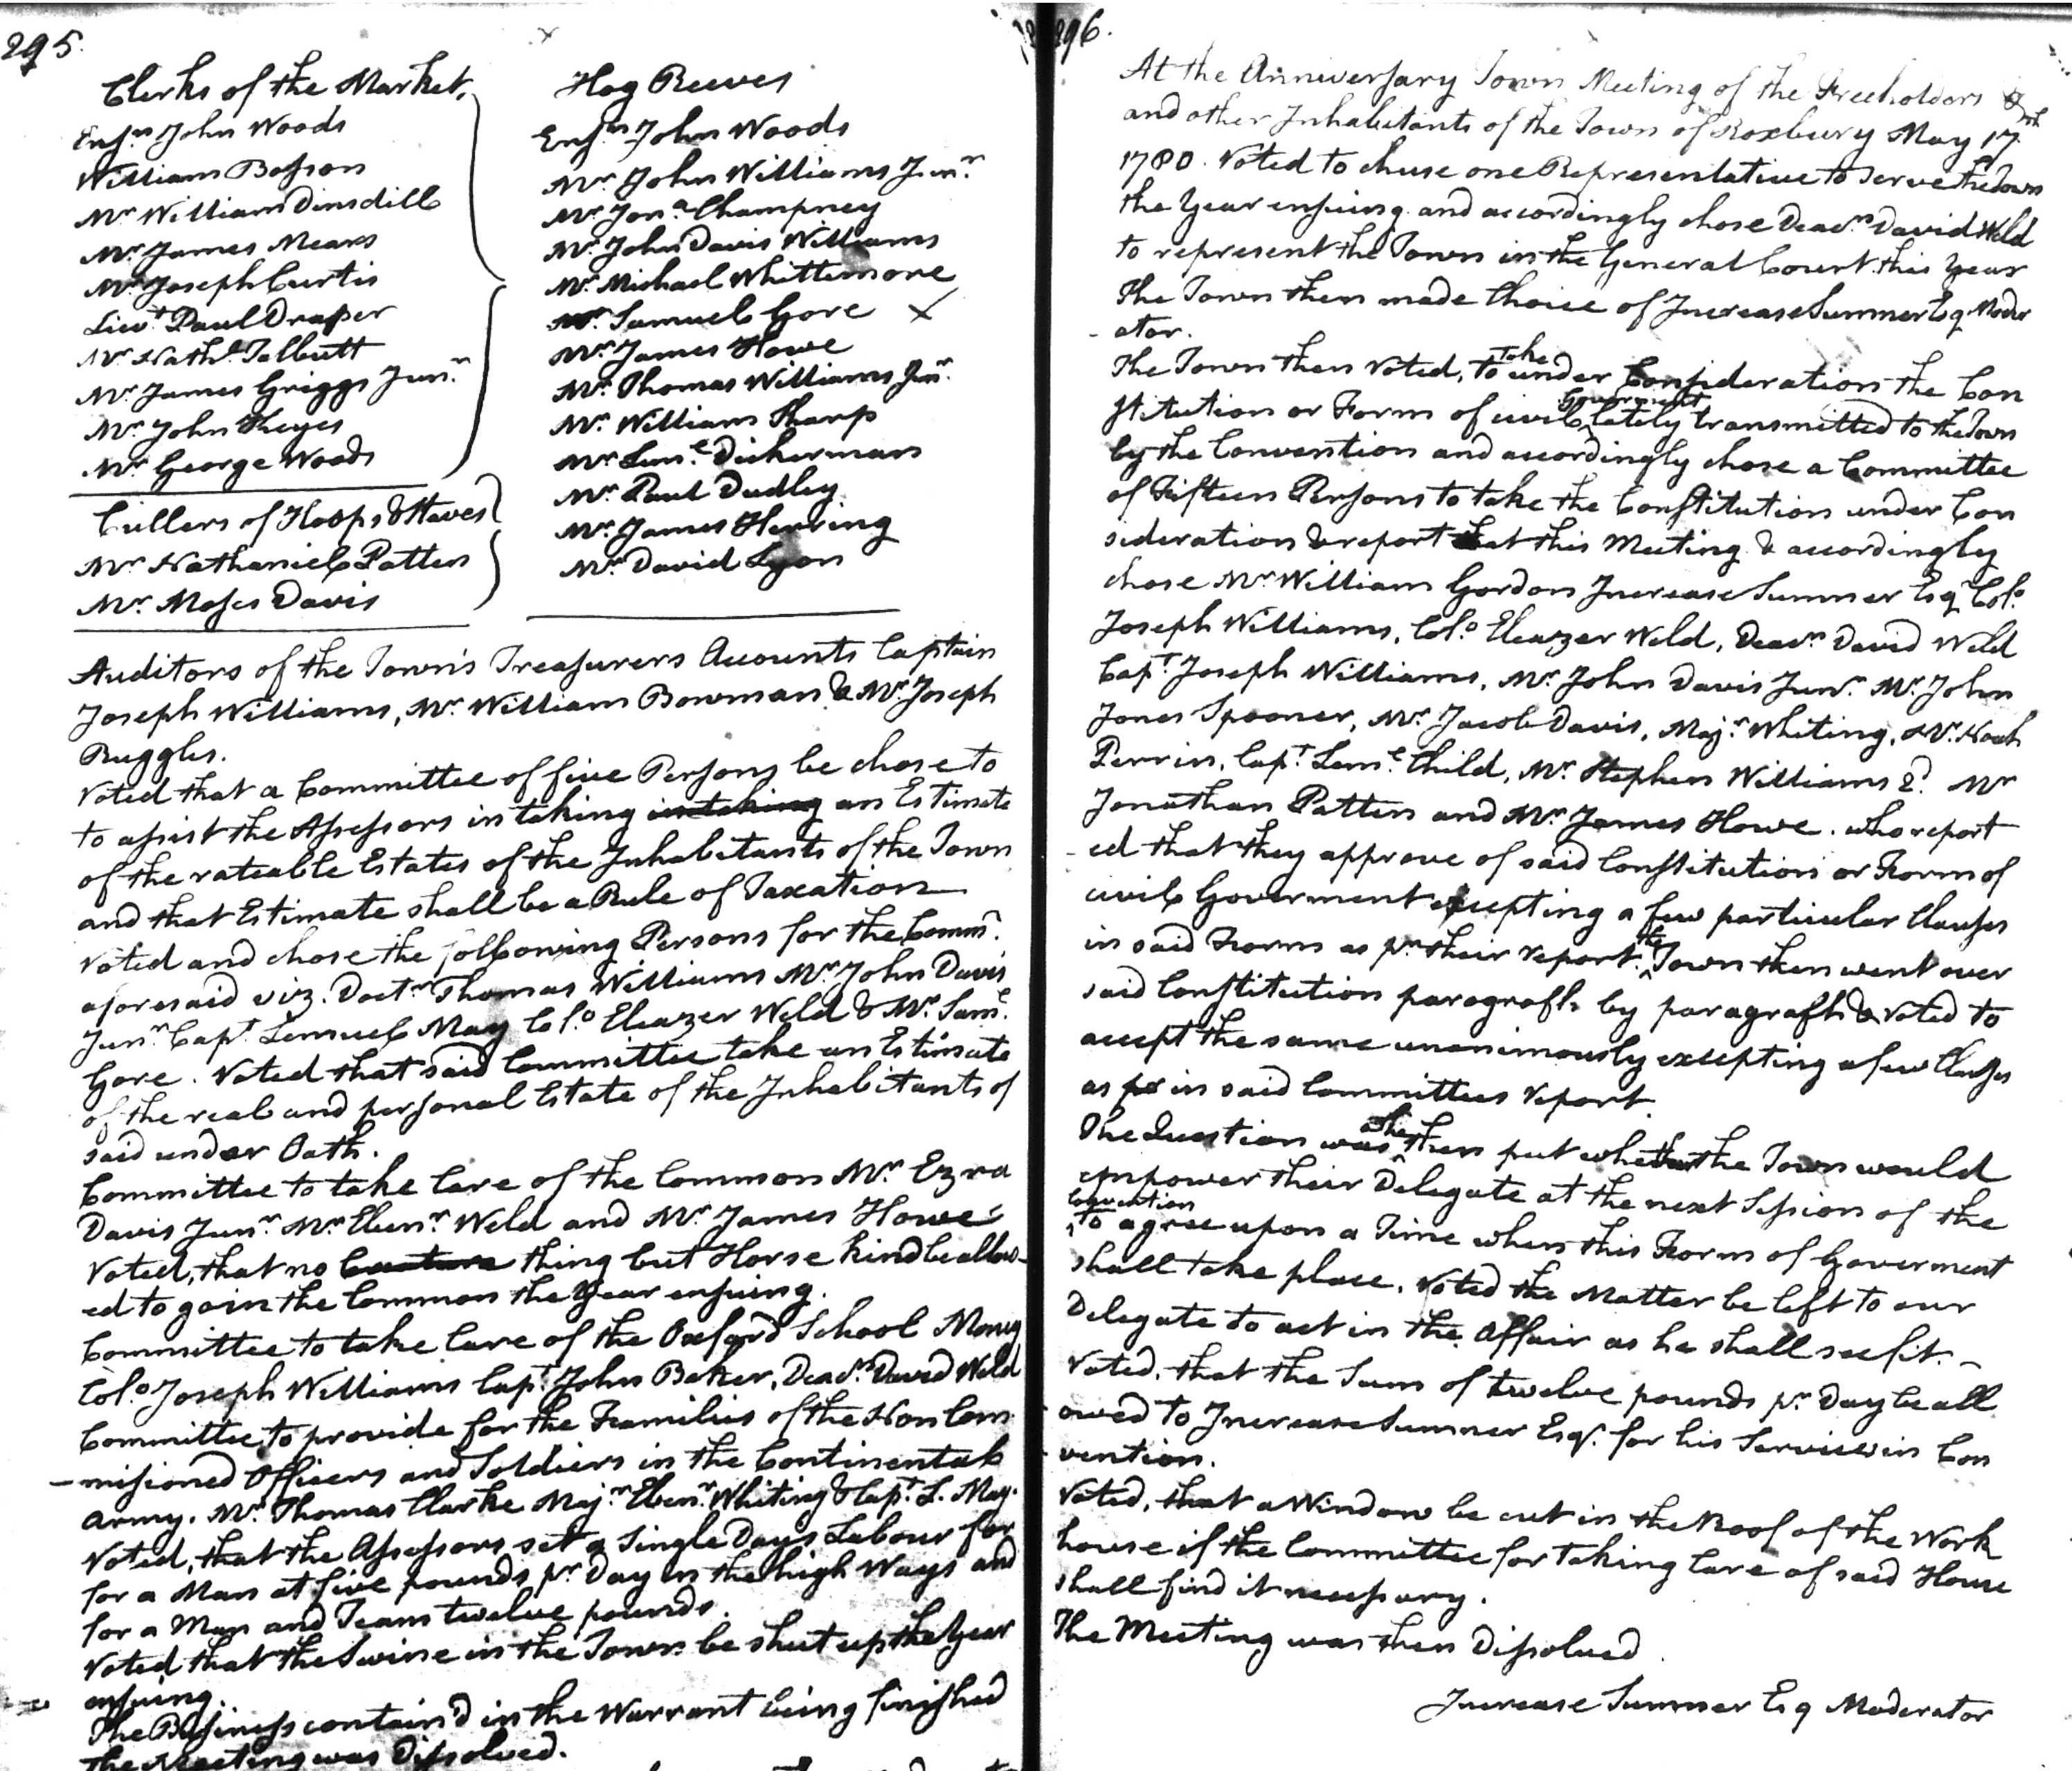 295.
Clerks of the Market,
Ensn John Woods
William Bosson
Mr William Dinsdill
Mr James Mears
Mr Joseph Curtis
Lieut Paul Draper
Mr Nathl Talbutt
Mr James Griggs Junr
Mr John Keyes
Mr George Woods
Cullers of Hoops & Staves
Mr Nathaniel Patten
Mr. Moses Davis
Hog Reeves
Ensn John Woods
Mr John Williams Junr
Mr Jona Champney
Mr John Davis Williams
Mr Michael Whittemore
Mr Samuel Gore X
Mr James Howe
Mr Thomas Williams Junr
Mr William Sharp
Mr Leml Dickerman
Mr Paul Dudley
Mr James Herring
Mr David Lyon
Auditors of the Town's Treasurers Accounts Captain
Joseph Williams, Mr William Bowman & Mr Joseph
Ruggles.
Voted that a Committee of five Persons be chose to
to assist the Assessors in taking in taking an Estimate
of the rateable Estates of the Inhabitants of the Town
and that Estimate shall be a Rule of Taxation
Voted and chose the following Persons for the Comm.
aforesaid viz. Doctr Thomas Williams Mr John Davis
Junr Capt Lemuel May Colo Eleazer Weld & Mr Saml
Gore. Voted that said Committee take an Estimate
of the real and personal Estate of the Inhabitants of
said under Oath.
Committee to take Care of the Common Mr Ezra
Davis Junr Mr Ebenr Weld and Mr James Howe
Voted, that no Creature thing but Horse kind be allow-
ed to go in the Common the Year ensuing.
Committee to take Care of the Oxford School Money
Colo Joseph Williams Capt John Baker, Deacn David Weld
Committee to provide for the Families of the Non Com
-missioned Officers and Soldiers in the Continental
Army. Mr Thomas Clarke Majr Ebenr Whiting & Capt L. May.
Voted, that the Assessors set a Single Days Labour for
for a Man at five pounds pr Day in the high Ways and
for a Man and Team twelve pounds.
Voted that the Swine in the Town be shut up the Year
ensuing.
The Business contain'd in the Warrant being finished
the Meeting was Dissolved.
296.
At the Anniversary Town Meeting of the Freeholders &
and other Inhabitants of the Town of Roxbury May 17th
1780. Voted to chuse one Representative to Serve the Town
the Year ensuing and accordingly chose Deacn David Weld
to represent the Town in the General Court this Year
The Town then made Choice of Increase Sumner Esq Moder
-ator.
The Town then Voted, to take under Consideration the Con
stitution or Form of civil Goverment lately transmitted to the Town
by the Convention and accordingly chose a Committee
of Fifteen Persons to take the Constitution under Con
sideration & report at this Meeting & accordingly
chose Mr William Gordon Increase Sumner Esq Colo
Joseph Williams, Colo Eleazer Weld, Deacn David Weld
Capt Joseph Williams, Mr John Davis Junr Mr John
Jones Spooner, Mr Jacob Davis, Majr Whiting, Mr Noah
Perrin, Capt Leml Child, Mr Stephen Williams 2d Mr
Jonathan Patten and Mr James Howe. who report
-ed that they approve of said Constitution or Form of
civil Goverment excepting a few particular Clauses
in said Form as pr their report. the Town then went over
said Constitution paragraph by paragraph & Voted to
accept the same unanimously excepting a few Clauses
as pr in said Committees report.
The Question was then put whether the Town would
empower their Delegate at the next Session of the
Convention to agree upon a Time when this Form of Goverment
shall take place. Voted the Matter be left to our
Delegate to act in the Affair as he shall see fit. -
Voted, that the Sum of twelve pounds pr Day be all
owed to Increase Sumner Esqr. for his Service in Con
vention.
Voted, that a Window be cut in the Roof of the Work
house if the Committee for taking Care of said House
shall find it necessary.
The Meeting was then Dissolved.
Increase Sumner Esq Moderator